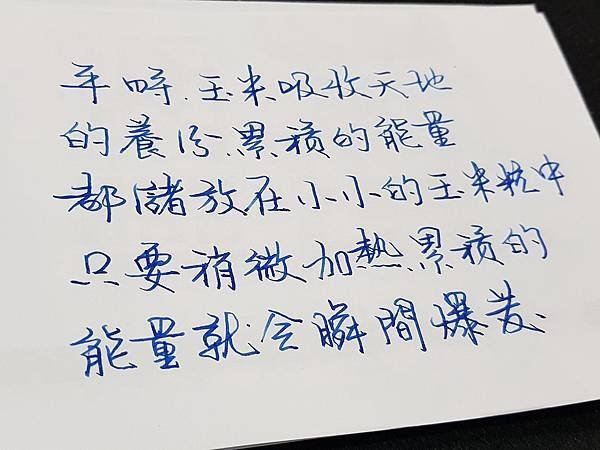 平時.玉米吸收天地
的養分.累積的能量
都儲放在小小的玉米粒中
只要稍微加熱累積的
能量就会瞬間爆发.